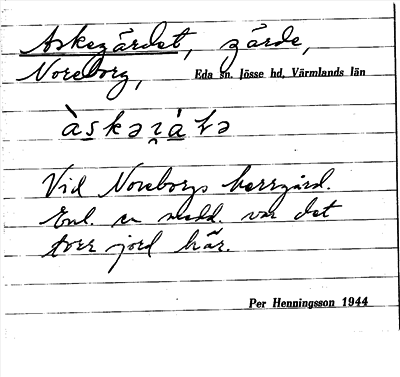 Askegärdet, gärde,
Noreborg, Eda sn. Jösse hd. Värmlands län
Vid Noreborgs herrgård.
Enl. en medd. var det
torr jord här.
Per Henningsson 1944